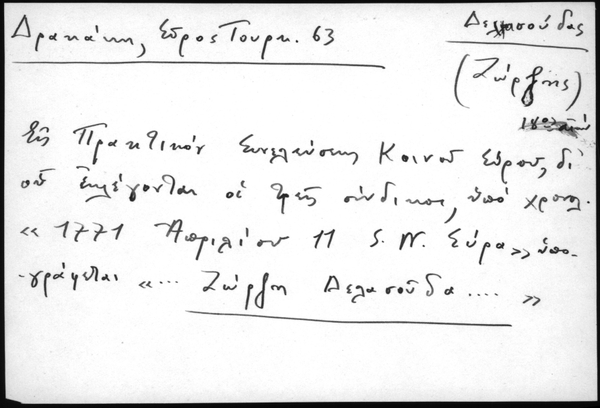 Δρακάκη, Σῦρος Τουρκ. 63
Δελασούδας
(Ζώρζης)
Εἰς Πρακτικόν Συνελεύσεως Κοινοῦ Σύρου, δι'
οὗ ἐκλέγονται οἱ τρεῖς σύνδικοι, ὑπό χρονολ.
« 1771 Ἀπριλίου 11 S. N. Σύρα » ὑπο-
-γράφεται «... Ζώρζη Δελασούδα .... »